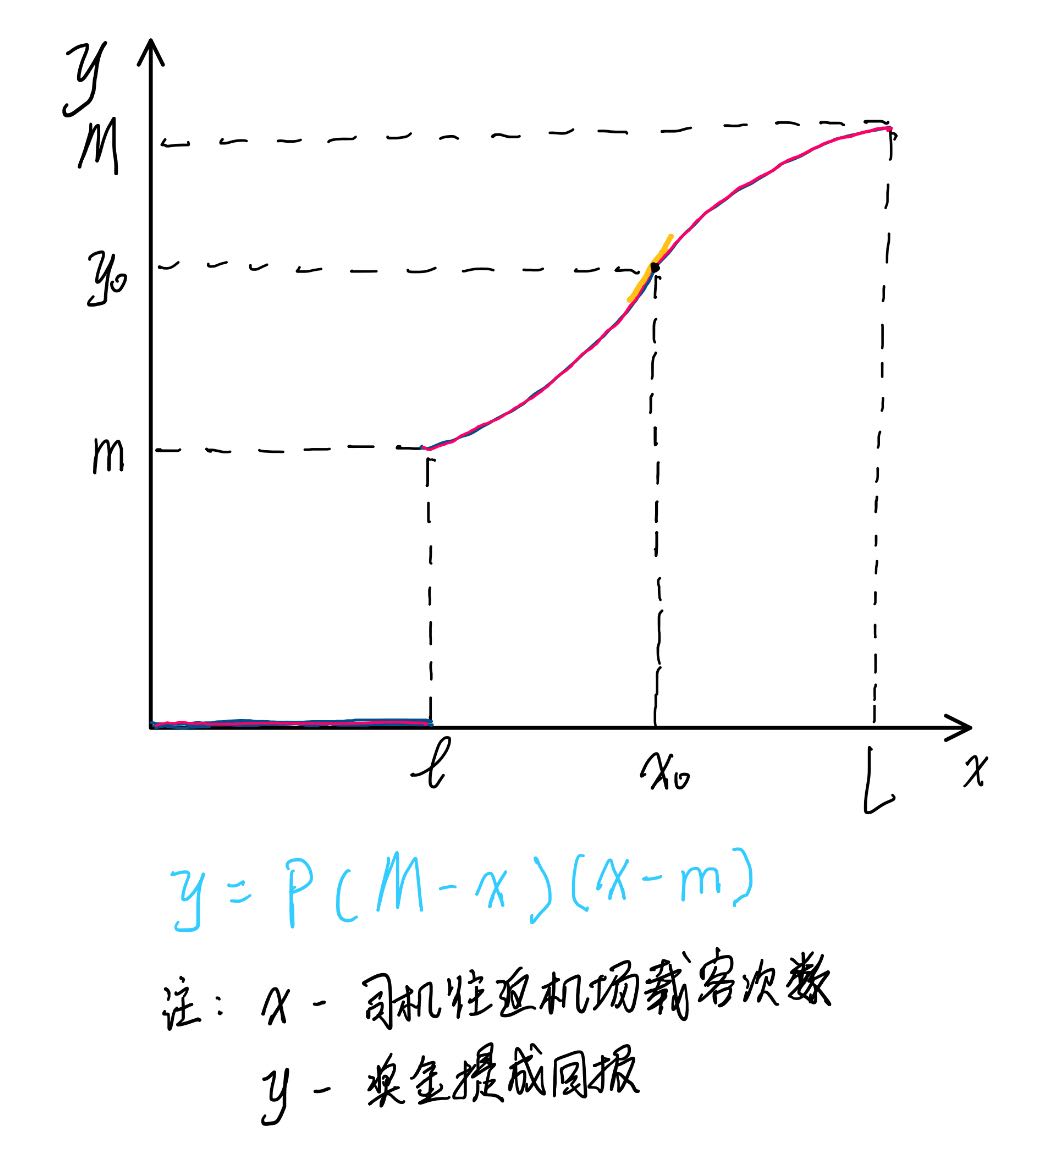 y
M
y₀
m
l x₀ L x
y = P(M-x)(x-m)
注: x - 司机往返机场载客次数
y - 奖金提成回报